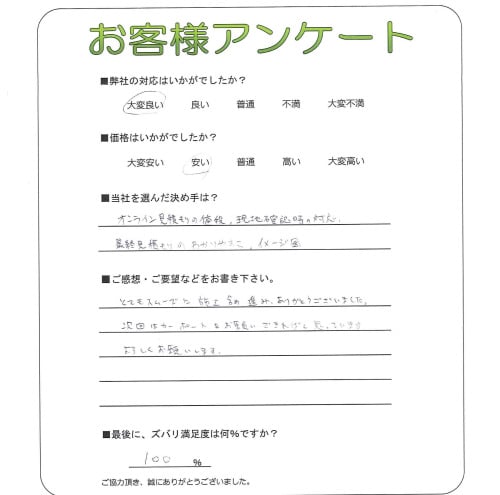 お客様アンケート
■弊社の対応はいかがでしたか?
大変良い 良い 普通 不満 大変不満
■価格はいかがでしたか?
大変安い 安い 普通 高い 大変高い
■当社を選んだ決め手は?
オンライン見積もりの価格、現地確認時の対応、
最終見積もりのわかりやすさ、イメージ図
■ご感想・ご要望などをお書き下さい。
とてもスムーズに 進み、ありがとうございました。
次回はカーポートをお願いできればと思っています
よろしくお願いします。
■最後に、ズバリ満足度は何%ですか?
100 %
ご協力頂き、誠にありがとうございました。